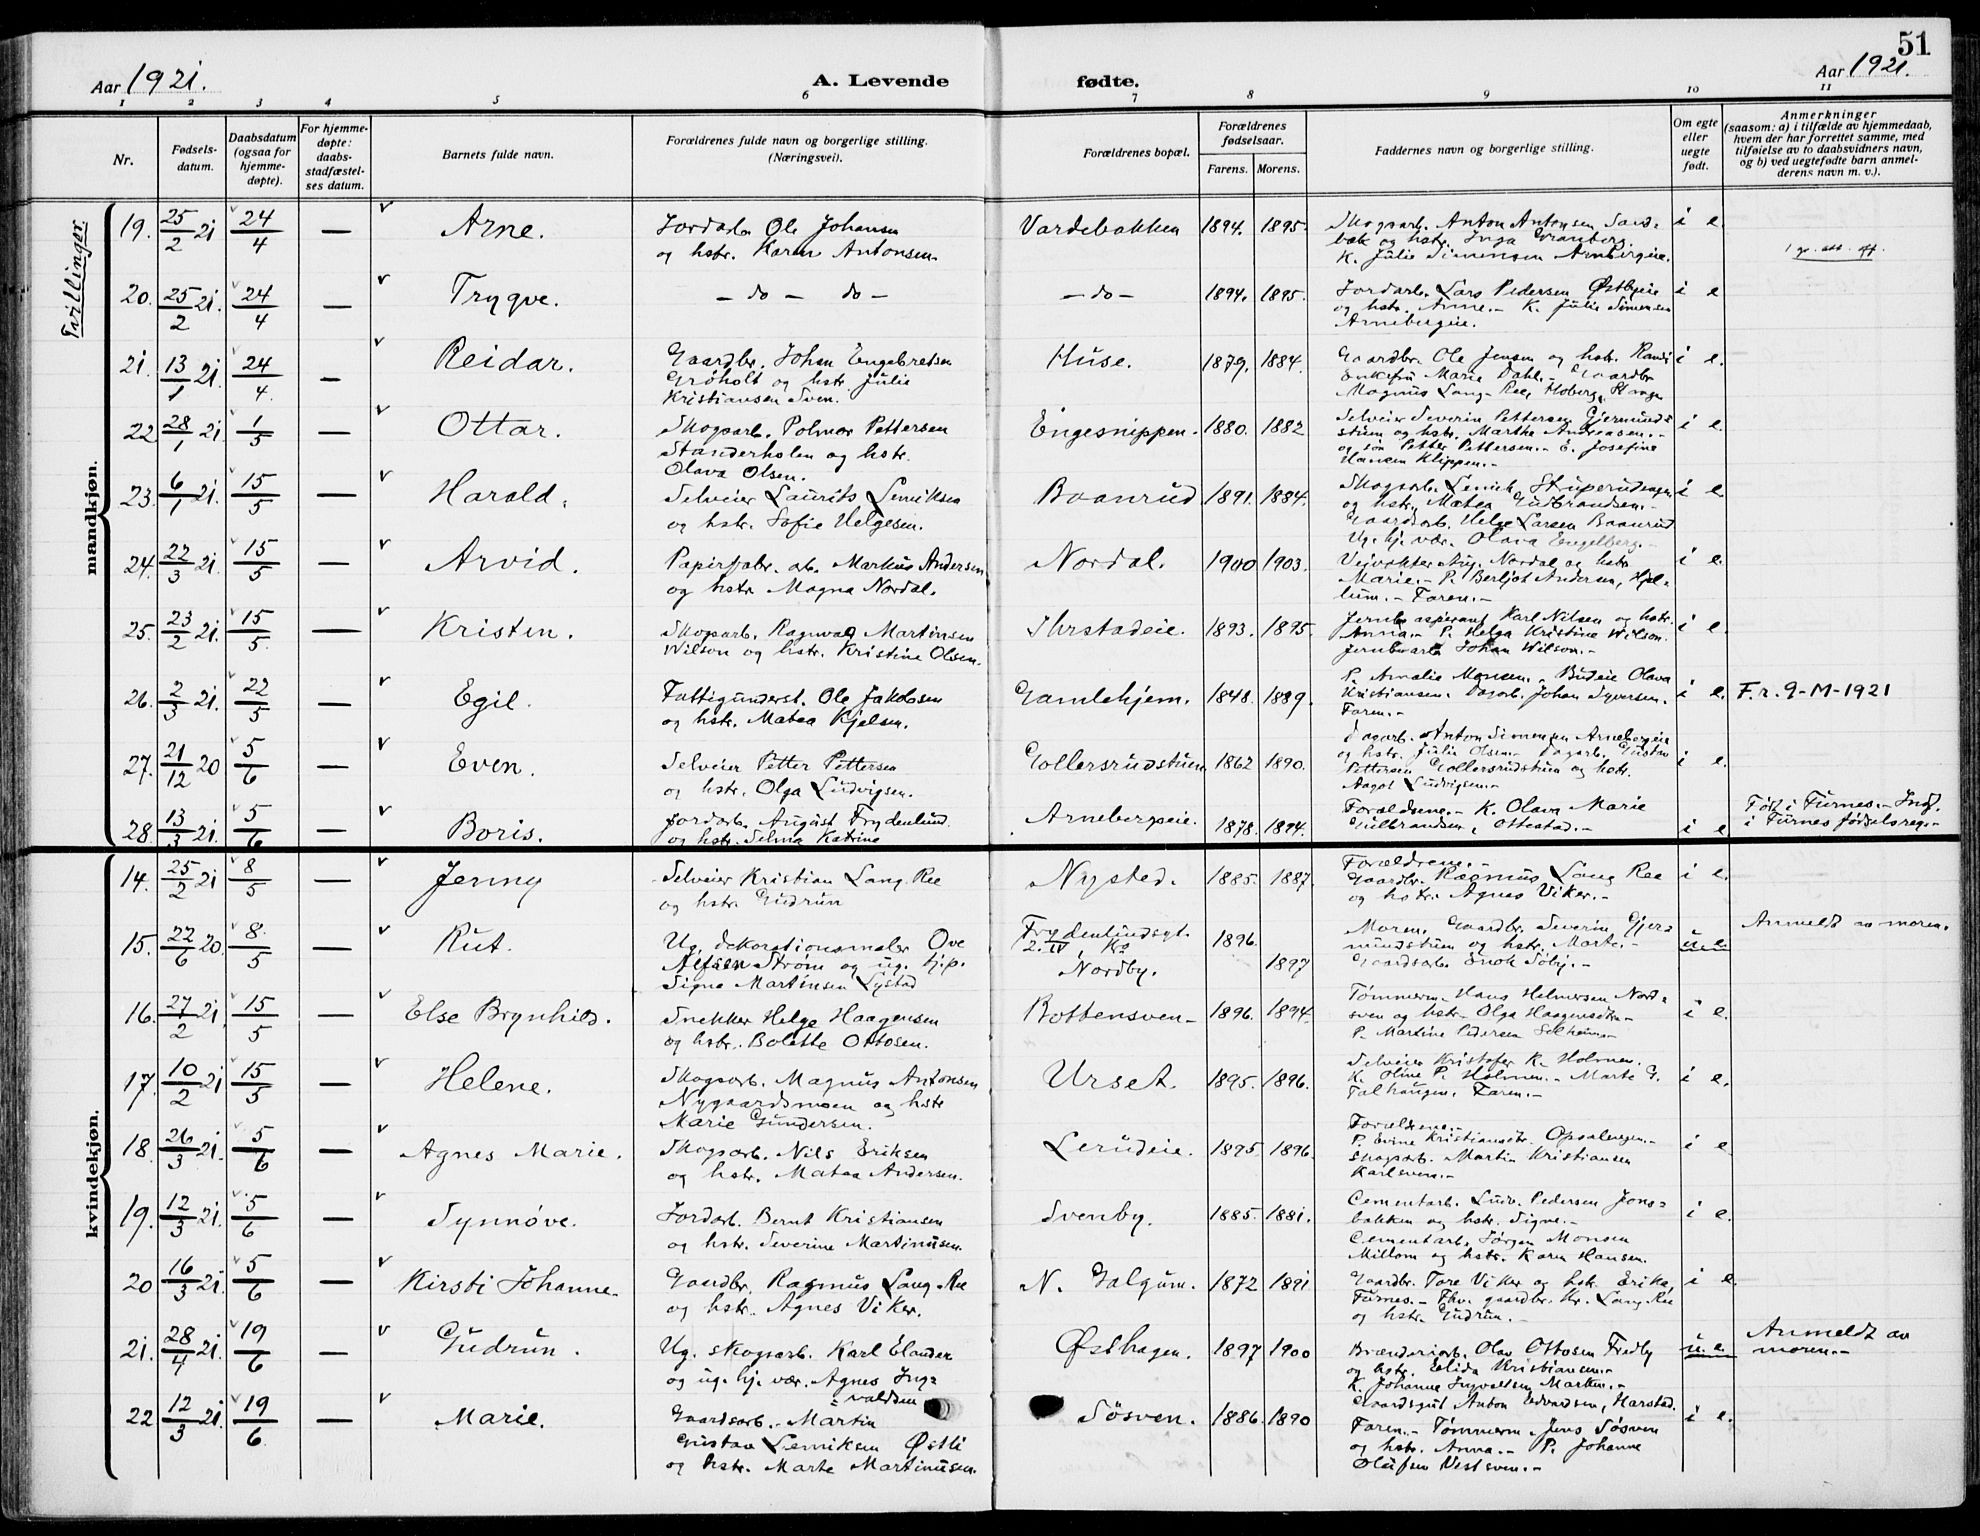 51
Aar 1921. A. Levende fødte. Aar 1921.
1 2 3 4 5 6 7 8 9 10 11
Nr.
Fødsels-
datum.
Daabsdatum
(ogsaa for
hjemme-
døpte).
For hjemme-
døpte:
daabs-
stadfæstel-
ses datum.
Barnets fulde navn.
Forældrenes fulde navn og borgerlige stilling.
(Næringsvei).
Forældrenes bopæl.
Forældrenes
fødselsaar.
Farens. Morens.
Faddernes navn og borgerlige stilling.
Om egte
eller
uegte
født.
Anmerkninger
(saasom: a) i tilfælde av hjemmedaab,
hvem der har forrettet samme, med
tilføielse av to daabsvidners navn,
og b) ved uegtefødte barn anmel-
derens navn m. v.).
Tvillinger
mandkjøn.
19. 25/2 21 24/4 — Arne. Jordarb. Ole Johansen
og hstr. Karen Antonsen.
Vardebakken 1894. 1895.
Skogsarb. Anton Antonsen Sand-
bæk og hstr. Inga Granberg.
K. Julie Simensen Arnbergeie.
i e
20. 25/2 21. 24/4 — Trygve. — do — do —
— do — 1894. 1895.
Jordarb. Lars Pedersen Østbyeie
og hstr. Anne. — K. Julie Simensen
Arnebergeie.
i e
21. 13/1 21. 24/4. — Reidar. Gaardbr. Johan Engebretsen
Grøholt og hstr. Julie
Kristiansen Sven.
Huse. 1879. 1884.
Gaardbr. Ole Jensen og hstr. Randi
Enkefru Marie Dahl. — Gaardbr
Magnus Lang-Ree, Hoberg, Stange
i e.
22 28/1 21. 1/5 — Ottar. Skogsarb. Polmar Pettersen
Standerholen og hstr.
Olava Olsen.
Engesnippen. 1880. 1882
Selveier Severin Pettersen Gjermunds-
stuen og hstr. Marthe Andreasen. —
og søn Petter Pettersen. — E. Josefine
Hansen Klippen. —
i e.
23. 6/1 21. 15/5 — Harald. Selveier Laurits Lemiksen
og hstr. Sofie Helgesen.
Baanrud 1891. 1884.
og hstr. Matea Gudbrandsen. —
Gaardsarb. Helge Larsen Baanrud
Ug. hj. vær. Olava Engelberg. —
i e.
24. 22/3 21. 15/5 — Arvid. Papirfabr. arb. Markus Andersen
og hstr. Magna Nordal.
Nordal. 1900 1903.
Veivokter Aug. Nordal og hstr
Marie. — P. Berljot Andersen, Hjel-
lum. — Faren. —
i e.
25. 23/2 21. 15/5. — Kristen. Skogsarb. Ragnvald Martinsen
Wilson og hstr. Kristine Olsen.
Ihrstadeie. 1893. 1895.
Jernb. aspirant Karl Nilsen og hstr.
Anna. — P. Helga Kristine Wilson.
Jernbvarb. Johan Wilson. —
i e.
26. 2/3 21. 22/5 — Egil. Fattigunderst. Ole Jakobsen
og hstr. Matea Kjelsen.
Gamlehjem. 1848. 1889.
P. Amalie Monsen. — Budeie Olava
Kristiansen. Dagarb. Johan Syversen.
Faren. —
i e. F. r. 9-M-1921
27. 21/12 20 5/6 — Even. Selveier Petter Pettersen
og hstr. Olga Ludvigsen.
Gollersrudstuen 1862 1890.
Dagarb. Anton Simensen Arnebergeie
og hstr. Julie Olsen. — Dagarb. Gustav
Pettersen Gollersrudstuen og hstr.
Aagot Ludvigsen. —
i e.
28. 13/3 21. 5/6 — Boris. Jordarb. August Frydenlund
og hstr. Selma Katrine
Arnebergeie. 1878. 1894.
Forældrene. — K. Olava Marie
Gulbrandsen, Ottestad. —
i e
Født i Furnes. — Indf.
i Furnes fødselsreg. —
kvindekjøn.
14. 25/2 21 8/5 — Jenny Selveier Kristian Lang-Ree
og hstr. Gudrun
Nysted. 1885. 1887.
Forældrene. —
Gaardbr. Rasmus Lang Ree
og hstr. Agnes Viker. —
i e.
15. 22/6 20. 8./5 — Rut. Ug. dekorationsmaler Ove
Alfsen Strøm og ug. tj.p.
Signe Martinsen Lystad
Frydenlundsgt.
2. IV Kr.a
Nordby. 1896. 1897
Moren. Gaardbr. Severin Gjer-
mundstuen og hstr. Marte. —
Gaardsarb. Enok Søby. —
u. e. Anmeldt av moren.
16. 27/2 21. 15/5 — Else Brynhild. Snekker Helge Haagensen
og hstr. Bolette Ottosen.
Bottensven — 1896. 1894.
Tømmerm. Hans Helmersen Nord-
sven og hstr. Olga Haagensdtr. —
P. Martine Pedersen Solheim. —
i e.
17. 10/2 21 15/5 — Helene. Skogsarb. Magnus Antonsen
Nygaardsmoen og hstr
Marie Gundersen.
Urset. 1895. 1896.
Selveier Kristofer K. Holmen.
K. Oline P. Holmen. — Marte G.
Falhaugen. Faren. —
i e.
18. 26/3 21. 5/6 — Agnes Marie. Skogsarb. Nils Eriksen
og hstr. Matea Andersen.
Lerudeie. 1895. 1896.
Forældrene. —
P. Evine Kristiansdtr. Opsalengen. —
Skogsarb. Martin Kristiansen
Karlsven. —
i e
19. 12/3 21. 5/6 — Synnøve. Jordarb. Bernt Kristiansen
og hstr. Severine Martinusen.
Svenby. 1885. 1881.
Cementarb. Ludv. Pedersen Jons-
bakken og hstr. Signe. —
Cementarb. Jørgen Monsen
Millom og hstr. Karen Hansen.
i e.
20 16/3 21. 5/6 — Kirsti Johanne. Gaardbr. Rasmus Lang-Ree
og hstr. Agnes Viker.
N. Jalgum. 1872 1891
Gaardbr. Tore Viker og hstr. Erika,
Furnes. — Fhv. gaardbr. Kr. Lang-Ree
og hstr. Gudrun. —
i e.
21. 28/4 21. 19/6 — Gudrun. Ug. skogsarb. Karl Elander
og ug. hj. vær. Agnes Ing-
valdsen
Østhagen. 1897 1900
Brænderiarb. Olav Ottosen Fredly
og hstr. Elida Kristiansen. —
K. Johanne Ingvaldsen Marken. —
u. e. Anmeldt av
moren. —
22 12/3 21. 19/6. — Marie. Gaardsarb. — Martin
Gustav Lemiksen Østli
og hstr. Marte Martinusen.
Søsven. 1886. 1890
Gaardsgut Anton Edvardsen, Harstad.
Faren. — Tømmerm. Jens Søsven
og hstr. Anna. — P. Johanne
Olufsen Vestsven. —
i e.